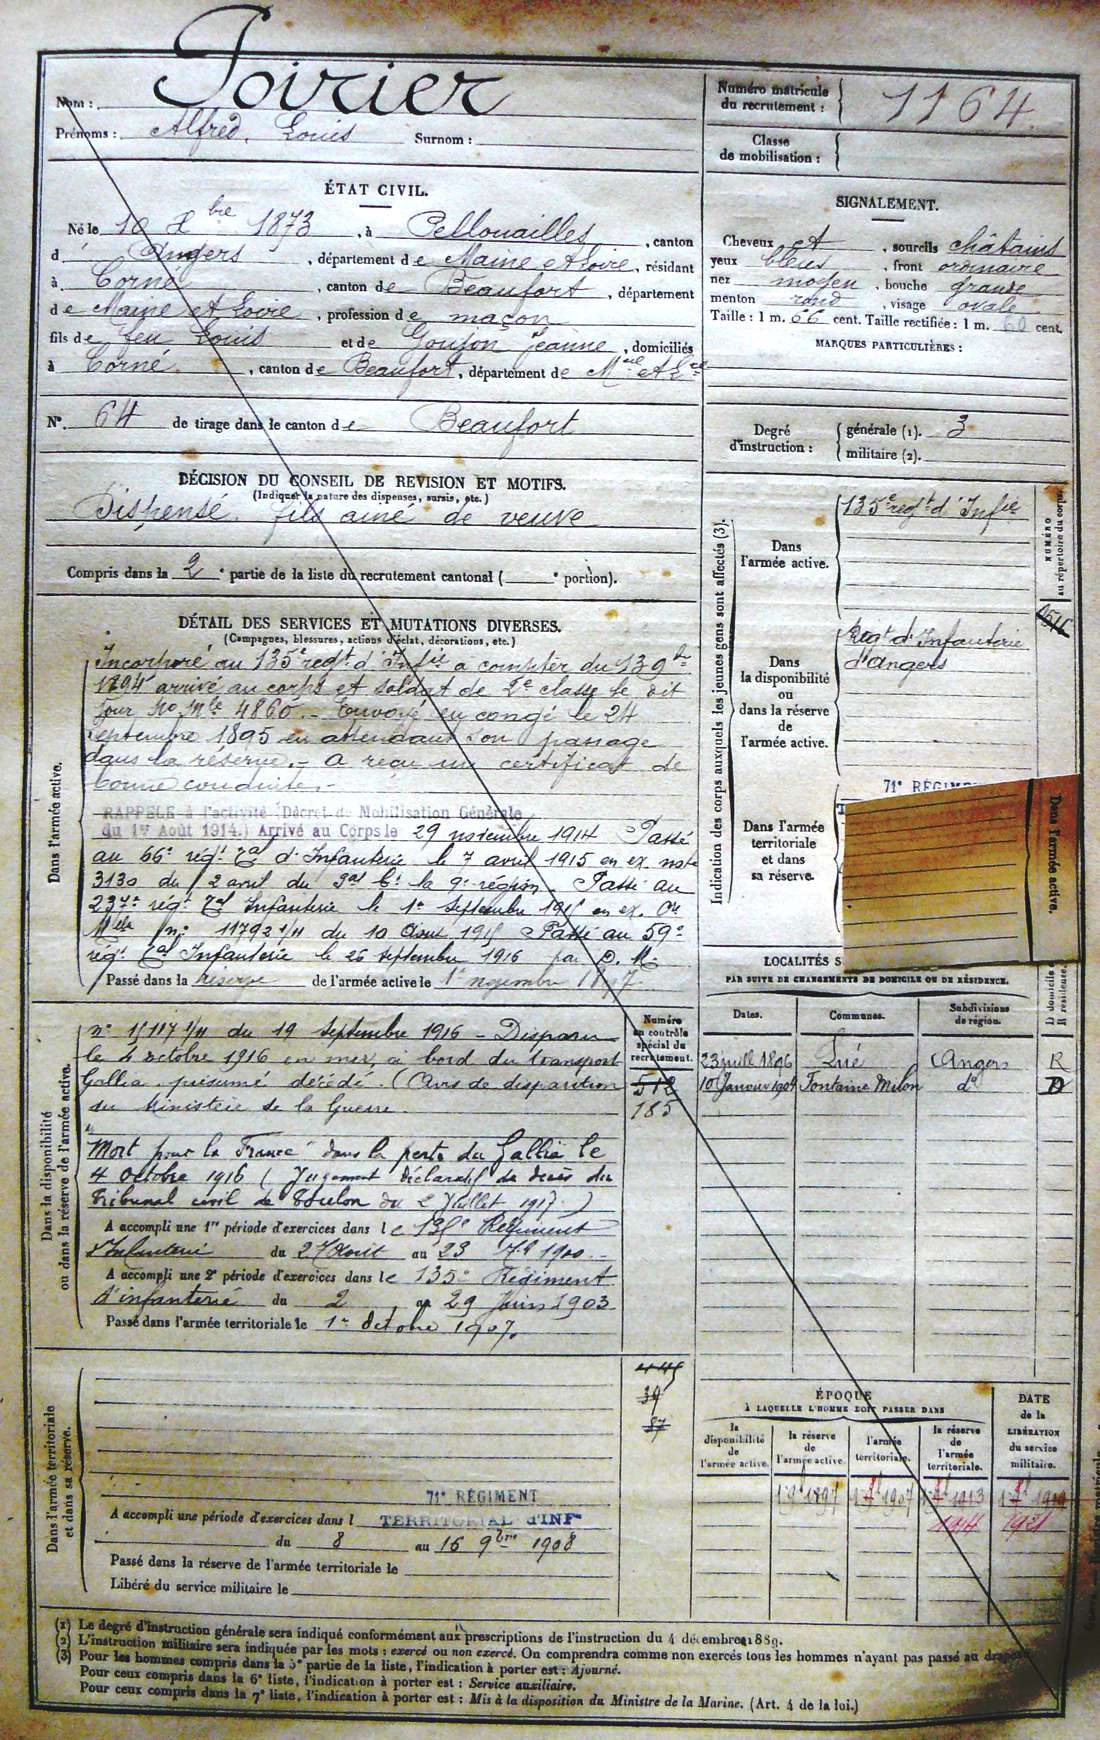 Nom : Poirier
Prénoms : Alfred, Louis Surnom :
Numéro matricule
du recrutement : 1164
Classe
de mobilisation :
ÉTAT CIVIL.
Né le 10 Xbre 1873, à Pellouailles, canton
d' Angers, département de Maine et Loire, résidant
à Corné, canton de Beaufort, département
de Maine et Loire, profession de maçon
fils de feu Louis et de Goujon Jeanne, domiciliés
à Corné, canton de Beaufort, département de Mne et Lre
N°. 64 de tirage dans le canton de Beaufort
SIGNALEMENT.
Cheveux et, sourcils châtains
yeux bleus, front ordinaire
nez moyen, bouche grande
menton rond, visage ovale
Taille : 1 m. 66 cent. Taille rectifiée : 1 m. 60 cent.
MARQUES PARTICULIÈRES :
Degré
d'instruction :
générale (1). 3
militaire (2).
DÉCISION DU CONSEIL DE REVISION ET MOTIFS.
(Indiquer la nature des dispenses, sursis, etc.)
Dispensé. fils aîné de veuve
Compris dans la 2e partie de la liste du recrutement cantonal ( e portion).
DÉTAIL DES SERVICES ET MUTATIONS DIVERSES.
(Campagnes, blessures, actions d'éclat, décorations, etc.)
Dans l'armée active.
Incorporé au 135e regt d'Infie a compter du 13 9bre
1894 arrivé au corps et soldat de 2e classe le dit
jour No Mle 4860. - Envoyé en congé le 24
septembre 1895 en attendant son passage
dans la réserve. - a reçu un certificat de
bonne conduite. -
RAPPELÉ à l'activité (Décret de Mobilisation Générale
du 1er Août 1914.) Arrivé au Corps le 29 novembre 1914 Passé
au 66e régt Tal d'Infanterie le 7 avril 1915 en ex. note
3130 du 2 avril du Gal Ct la 9e région - Passé au
237e régt Tal Infanterie le 1er Septembre 1915 en ex.
Mlle no 11792 1/11 du 10 Aout 1915 Passé au 59e
régt Tal Infanterie le 26 septembre 1916 par D. M.
Passé dans la réserve de l'armée active le 1er novembre 1897
Dans la disponibilité
ou dans la réserve de l'armée active.
no 15117 1/11 du 19 Septembre 1916 - Disparu
le 4 octobre 1916 en mer, à bord du transport
Gallia présumé décédé. (Avis de disparition
du Ministère de la Guerre.
"Mort pour la France" dans la perte du Gallia le
4 octobre 1916 (Jugement déclaratif de décès du
Tribunal civil de Toulon du 2 Juillet 1917)
A accompli une 1re période d'exercices dans le 135e Régiment
d'Infanterie du 27 Août au 23 7bre 1900 -
A accompli une 2e période d'exercices dans le 135e Régiment
d'infanterie du 2 au 29 Juin 1903
Passé dans l'armée territoriale le 1er octobre 1907.
Numéro
au contrôle
spécial du
recrutement.
512
185
Dans l'armée territoriale
et dans sa réserve.
445
39
87
A accompli une période d'exercices dans l 71e RÉGIMENT
TERRITORIAL d'INFie
du 8 au 16 9bre 1908
Passé dans la réserve de l'armée territoriale le
Libéré du service militaire le
Indication des corps auxquels les jeunes gens sont affectés (3).
Dans
l'armée active.
135e regt d'Infie
NUMÉRO
au répertoire du corps
Dans
la disponibilité
ou
dans la réserve
de
l'armée active.
Regt d'Infanterie
d'Angers
Dans l'armée
territoriale
et dans
sa réserve.
71e RÉGIM
Dans l'armée active.
LOCALITÉS S
PAR SUITE DE CHANGEMENTS DE DOMICILE OU DE RÉSIDENCE.
Dates. Communes. Subdivisions
de région. D domicile
R résidence.
23 juill 1896 Lué Angers R
10 Janvier 1904 Fontaine Milon do D
ÉPOQUE
À LAQUELLE L'HOMME DOIT PASSER DANS
la
disponibilité
de
l'armée active.
la réserve
de
l'armée active.
l'armée
territoriale.
la réserve
de
l'armée
territoriale.
DATE
de la
LIBÉRATION
du service
militaire.
1897 1907 1913 1919
1921
(1) Le degré d'instruction générale sera indiqué conformément aux prescriptions de l'instruction du 4 décembre 1889.
(2) L'instruction militaire sera indiquée par les mots : exercé ou non exercé. On comprendra comme non exercés tous les hommes n'ayant pas passé au drapeau.
(3) Pour les hommes compris dans la 5e partie de la liste, l'indication à porter est : Ajourné.
Pour ceux compris dans la 6e liste, l'indication à porter est : Service auxiliaire.
Pour ceux compris dans la 7e liste, l'indication à porter est : Mis à la disposition du Ministre de la Marine. (Art. 4 de la loi.)